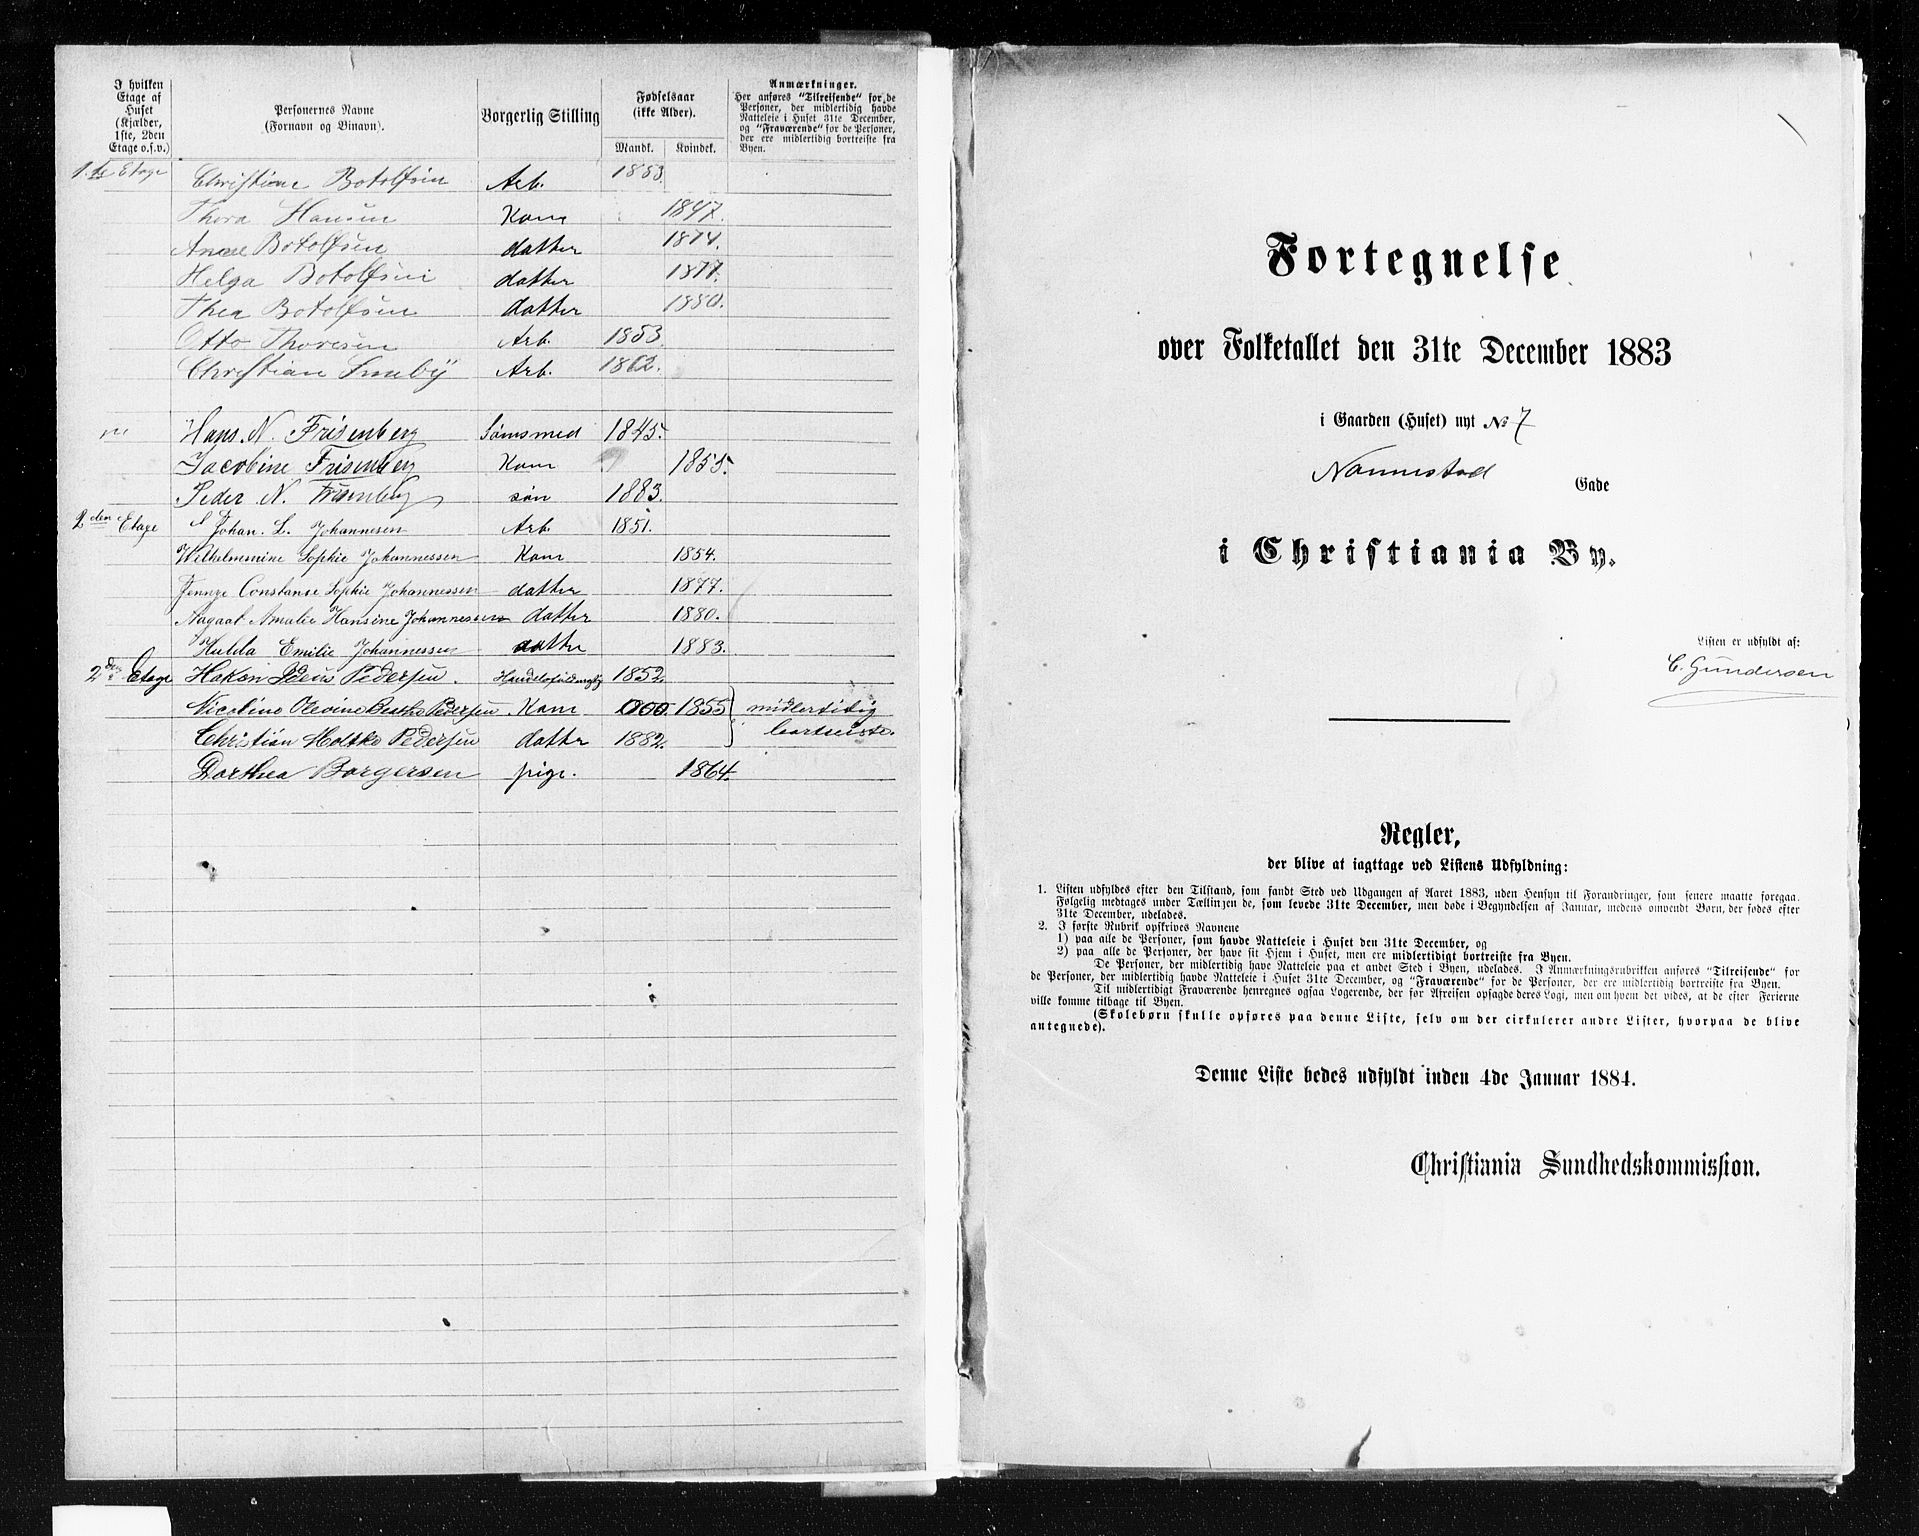 I hvilken Etage af Huset (Kjælder, 1ste, 2den Etage o.s.v.)
Personernes Navne (Fornavn og Binavn).
Borgerlig Stilling
Fødselsaar (ikke Alder).
Mandk. Kvindek.
Anmærkninger.
Her anføres "Tilreisende" for de
Personer, der midlertidig havde
Natteleie i Huset 31te December,
og "Fraværende" for de Personer,
der ere midlertidig bortreiste fra
Byen.
1.ste Etage Christian Botolfsen Arb. 1853.
Thora Hansen Kone 1847.
Anne Botolfsen datter 1874.
Helga Botolfsen datter 1877.
Thea Botolfsen datter 1880.
Otto Thoresen Arb. 1853
Christian Smeby Arb. 1862.
Hans N. Frisenberg Sømsmed 1845.
Jacobine Frisenberg Kone 1855.
Peder N. Frisenberg søn 1883.
2den Etage Johan. L. Johannesen Arb. 1851.
Wilhelmmine Sophie Johannessen Kone 1854.
Jennye Constanse Sophie Johannessen datter 1877.
Aagaat Amalie Hansine Johannessen datter 1880.
Hulda Emilie Johannessen datter 1883.
2den Etage Hakon Pedersen. 1852.
Nicoline Olevine Pedersen Kone 1855 midlertidig
Christian Moltke Pedersen datter 1882. bortreiste.
Dorthea Borgersen pige. 1864.
Fortegnelse
over Folketallet den 31te December 1883
i Gaarden (Huset) nyt № 7
Nannestad Gade
i Christiania By.
Listen er udfyldt af:
C. Gundersen
Regler,
der blive at iagttage ved Listens Udfyldning:
1. Listen udfyldes efter den Tilstand, som fandt Sted ved Udgangen af Aaret 1883, uden Hensyn til Forandringer, som senere maatte foregaa.
Følgelig medtages under Tællingen de, som levede 31te December, men døde i Begyndelsen af Januar, medens omvendt Børn, der fødes efter
31te December, udelades.
2. I første Rubrik opskrives Navnene
1) paa alle de Personer, som havde Natteleie i Huset den 31te December, og
2) paa alle de Personer, der have sit Hjem i Huset, men ere midlertidigt bortreiste fra Byen.
De Personer, der midlertidig have Natteleie paa et andet Sted i Byen, udelades. I Anmærkningsrubrikken anføres "Tilreisende" for
de Personer, der midlertidig havde Natteleie i Huset 31te December, og "Fraværende" for de Personer, der ere midlertidig bortreiste fra Byen.
Til midlertidigt Fraværende henregnes ogsaa Logerende, der før Afreisen opsagde deres Logi, men om hvem det vides, at de efter Ferierne
ville komme tilbage til Byen.
(Skolebørn skulle opføres paa denne Liste, selv om der cirkulerer andre Lister, hvorpaa de blive
antegnede).
Denne Liste bedes udfyldt inden 4de Januar 1884.
Christiania Sundhedskommission.